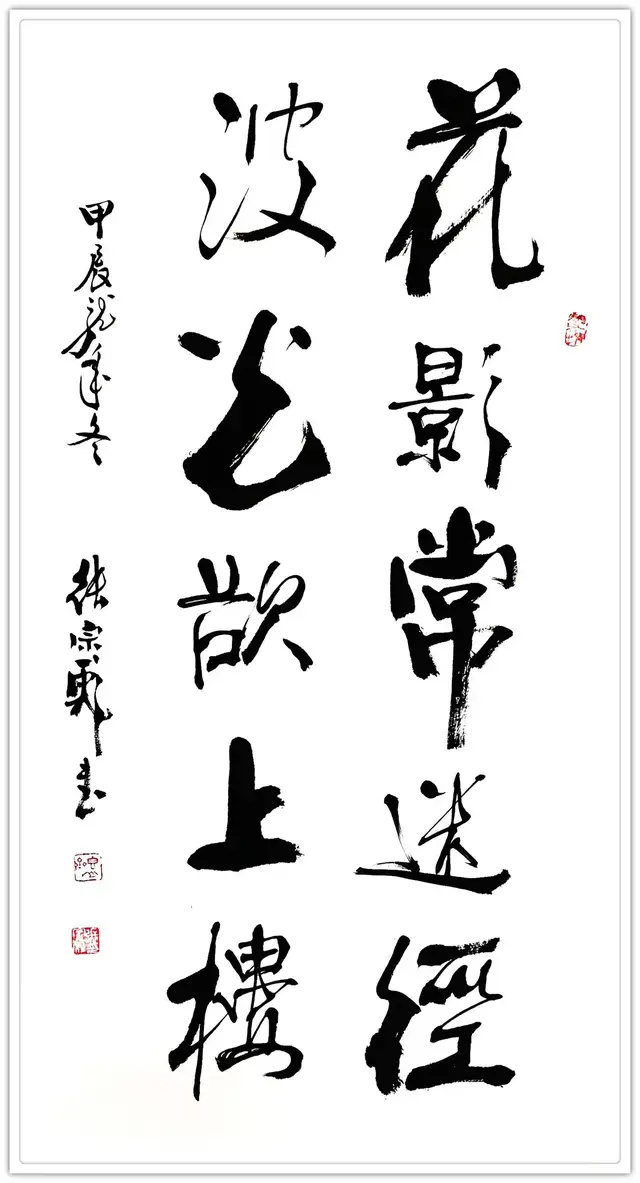 花影常迷徑
波光欲上樓
甲辰龙年冬
張宗彪书